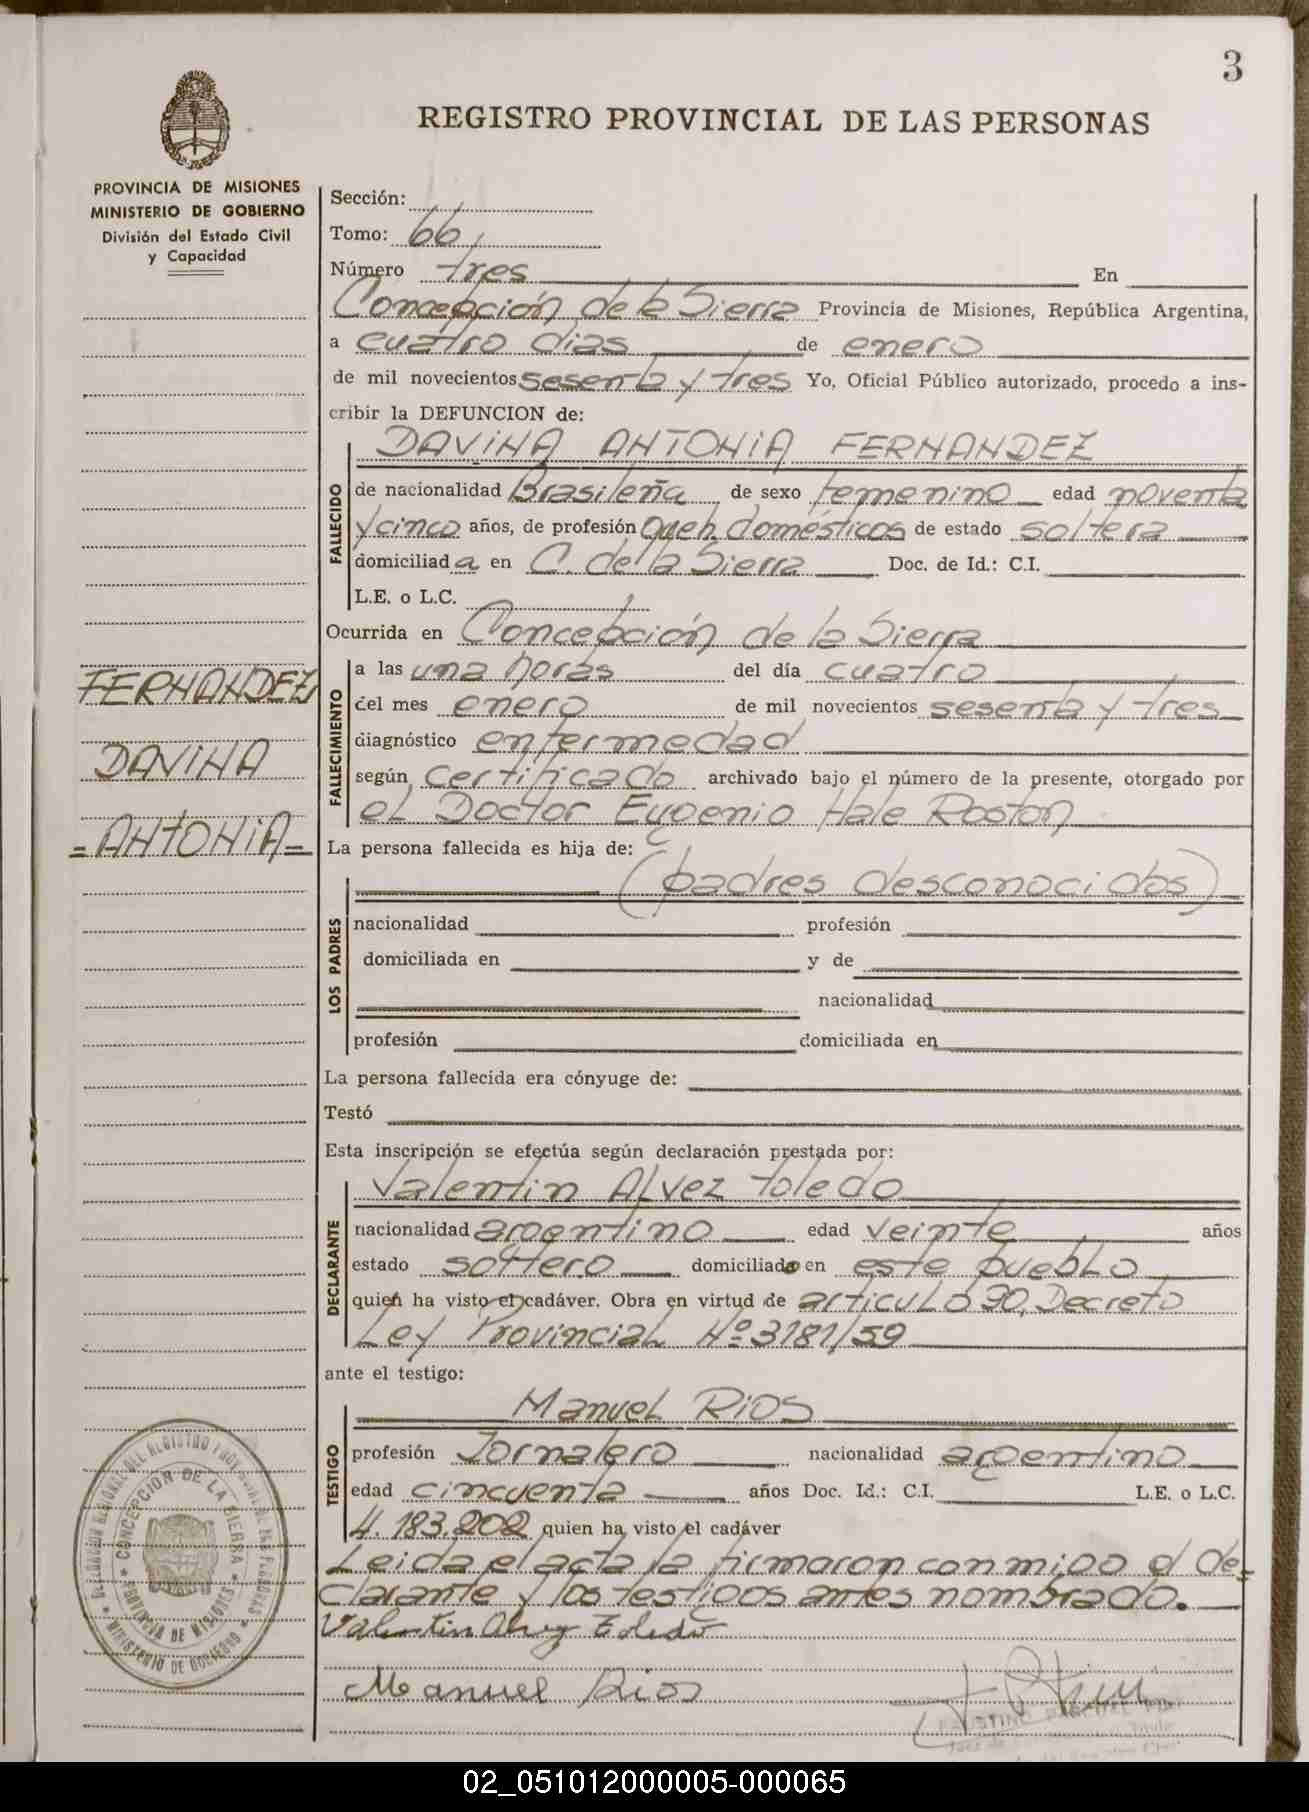 3
REGISTRO PROVINCIAL DE LAS PERSONAS
PROVINCIA DE MISIONES
MINISTERIO DE GOBIERNO
División del Estado Civil
y Capacidad
Sección:
Tomo: 66
Número tres En
Concepción de la Sierra Provincia de Misiones, República Argentina,
a cuatro dias de enero
de mil novecientos sesenta y tres Yo, Oficial Público autorizado, procedo a ins-
cribir la DEFUNCION de:
FALLECIDO
DAVINA ANTONIA FERNANDEZ
de nacionalidad Brasileña de sexo femenino edad noventa
y cinco años, de profesión Queh. domésticos de estado soltera
domiciliada en C. de la Sierra Doc. de Id.: C.I.
L.E. o L.C.
Ocurrida en Concepción de la Sierra
FALLECIMIENTO
a las una horas del día cuatro
del mes enero de mil novecientos sesenta y tres
diagnóstico enfermedad
según Certificado archivado bajo el número de la presente, otorgado por
el Doctor Eugenio Hale Roston
FERNANDEZ
DAVINA
=ANTONIA=
La persona fallecida es hija de:
LOS PADRES
(padres desconocidos)
nacionalidad profesión
domiciliada en y de
nacionalidad
profesión domiciliada en
La persona fallecida era cónyuge de:
Testó
Esta inscripción se efectúa según declaración prestada por:
DECLARANTE
Valentin Alvez Toledo
nacionalidad argentino edad veinte años
estado soltero domiciliado en este pueblo
quien ha visto el cadáver. Obra en virtud de articulo 30, Decreto
Ley Provincial Nº 3181/59
ante el testigo:
TESTIGO
Manuel Rios
profesión Jornalero nacionalidad argentino
edad cincuenta años Doc. Id.: C.I. L.E. o L.C.
4.183.202 quien ha visto el cadáver
Leida el acta la firmaron conmigo el de=
clarante y los testigos antes nombrado.
Valentin Alvez Toledo
Manuel Rios
DELEGACION REGIONAL DEL REGISTRO PROVINCIAL DE LAS PERSONAS
CONCEPCION DE LA SIERRA
PROVINCIA DE MISIONES
MINISTERIO DE GOBIERNO
02_051012000005-000065